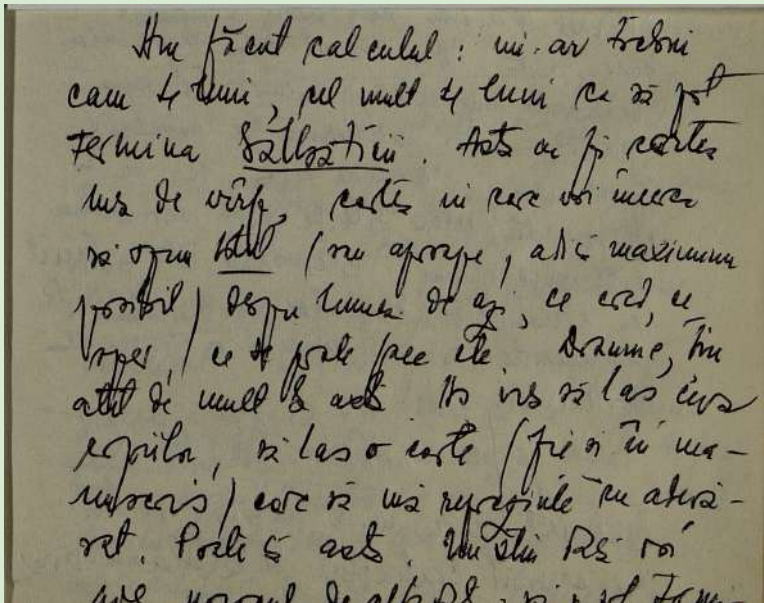 Am făcut calculul: mi-ar trebui
cam de luni, cel mult de luni ca să pot
termina Sălbaticii. Asta ar fi cartea
mea de vârf, cartea în care voi încerca
să spun tot (sau aproape, adică maximum
posibil) despre lumea de azi, ce cred, ce
sper, ce se poate face etc. Doamne, țin
atât de mult la asta. Aș vrea să las ceva
copiilor, să las o carte (fie și în ma-
nuscris) care să mă reprezinte cu adevă-
rat. Poate că asta. Nu știu dacă voi
avea norocul de altădată, să pot